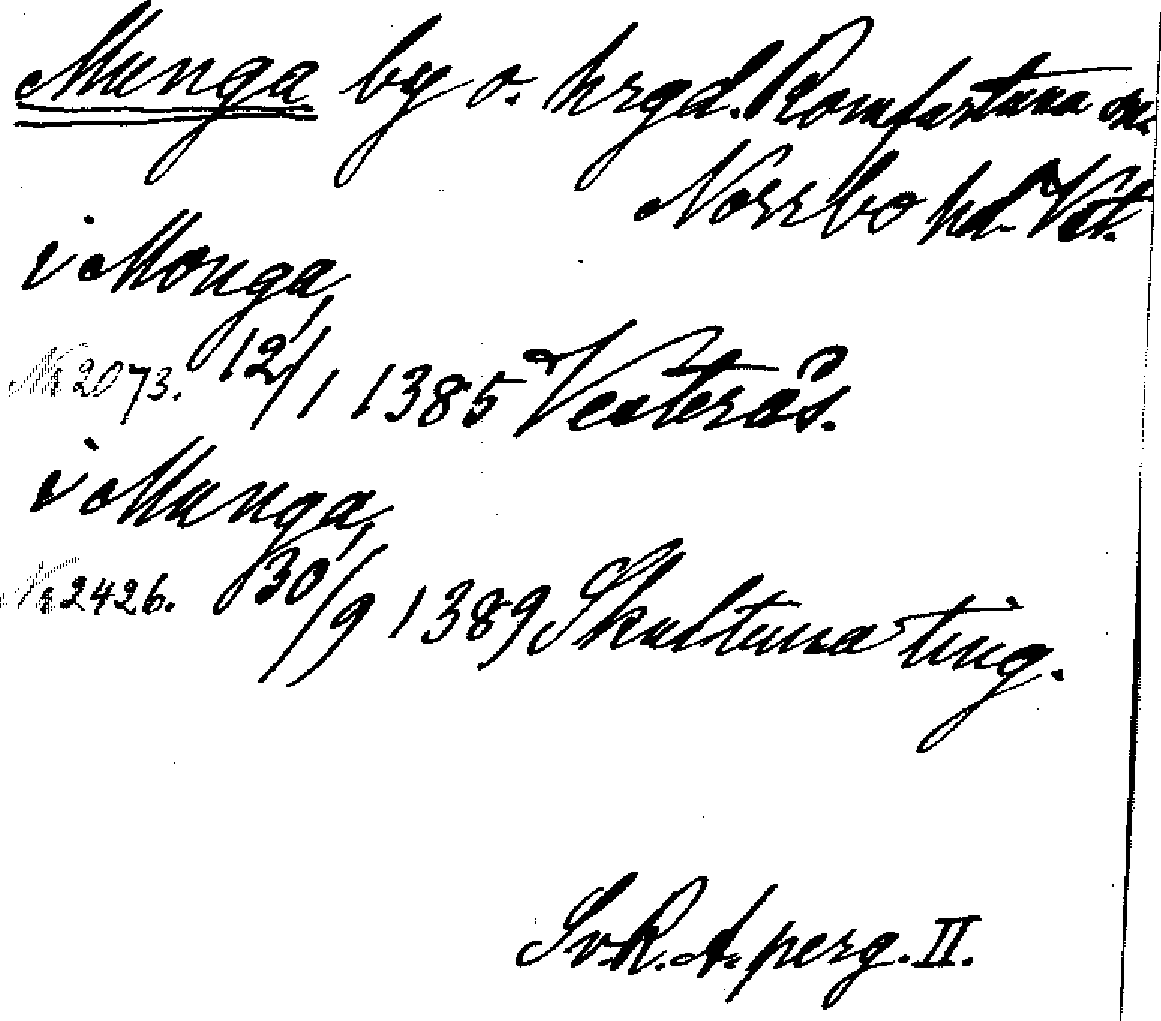 Munga by o. hrgd. Romfartuna sn.
Norrbo hd. Vstm.
i Monga,
No 2073. 12/1 1385 Vesterås.
i Munga,
No 2426. 30/9 1389 Skultuna ting.
Sv. R. A. perg. II.